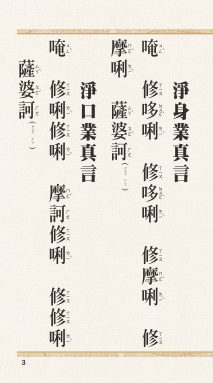 淨身業真言
唵　修哆唎　修哆唎　修摩唎　修
摩唎　薩婆訶
淨口業真言
唵　修唎修唎　摩訶修唎　修修唎
薩婆訶
3